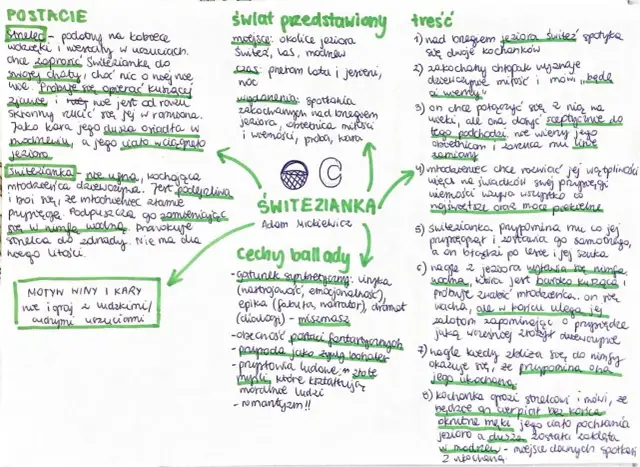 POSTACIE
Strzelec - podobny na kobiece
wdzięki i wierzący w uczuciach.
chce zaprosić Świteziankę do
swojej chaty, choć nic o niej nie
wie. Próbuje się opierać kuszącej
zjawie i nie jest od razu
skłonny rzucić się jej w ramiona.
Jako kara jego dusza osiadła w
modrzewiu, a jego ciało wciągnęło
jezioro
Świtezianka - nie ufna, kochająca
młodzieńca dziewczyna. Jest podejrzliwa
i boi się, że młodzieniec złamie
przysięgę. Podpuszcza go zamieniając
się w nimfę wodną. Prowokuje
strzelca do zdrady. Nie ma dla
niego litości.
MOTYW WINY I KARY
nie igraj z ludzkimi/
uczuciami
świat przedstawiony
miejsce: okolice jeziora
Świteź, las, modrzew
czas: przełom lata i jesieni,
noc
wydarzenia: spotkania
zakochanych nad brzegiem
jeziora, obietnica miłości
i wierności, próba, kara
ŚWITEZIANKA
Adam Mickiewicz
cechy ballady
- gatunek synkretyczny: liryka
(nastrojowość, emocjonalność),
epika (fabuła, narrator), dramat
(dialogi) - miszmasz
- obecność postaci fantastycznych
- przyroda jako żywy bohater
- przysłowia ludowe "złote
myśli" które kształtują
moralnie ludzi
- romantyzm!!
treść
1) nad brzegiem jeziora Świteź spotyka
się dwoje kochanków
2) zakochany chłopak wyznaje
dziewczynie miłość i mówi "będę
ci wierny"
3) on chce połączyć się z nią na
wieki, ale ona dosyć sceptycznie do
tego podchodzi, nie wierzy jego
obietnicom i zarzuca mu inne
zamiary
4) młodzieniec chce rozwiać jej wątpliwości
więc na świadków swej przysięgi
wierności wzywa wszystko co
najświętsze oraz moce piekielne
5) świtezianka przypomina mu co jej
przysięgał i zostawia go samotnego,
a on błądzi po lesie i jej szuka
6) nagle z jeziora wyłania się nimfa
wodna, która jest bardzo kusząca i
próbuje zwabić młodzieńca. on się
waha, ale w końcu ulega jej
zalotom zapominając o przysiędze
jaką wcześniej złożył dziewczynie
7) nagle kiedy zbliża się do nimfy
okazuje się, że przypomina ona
jego ukochaną
8) kochanka grozi strzelcowi i mówi, że
będzie on cierpiał bez końca
okrutne męki, jego ciało pochłania
jezioro a dusza została zaklęta
w modrzew - miejsce dawnych spotkań
z ukochaną